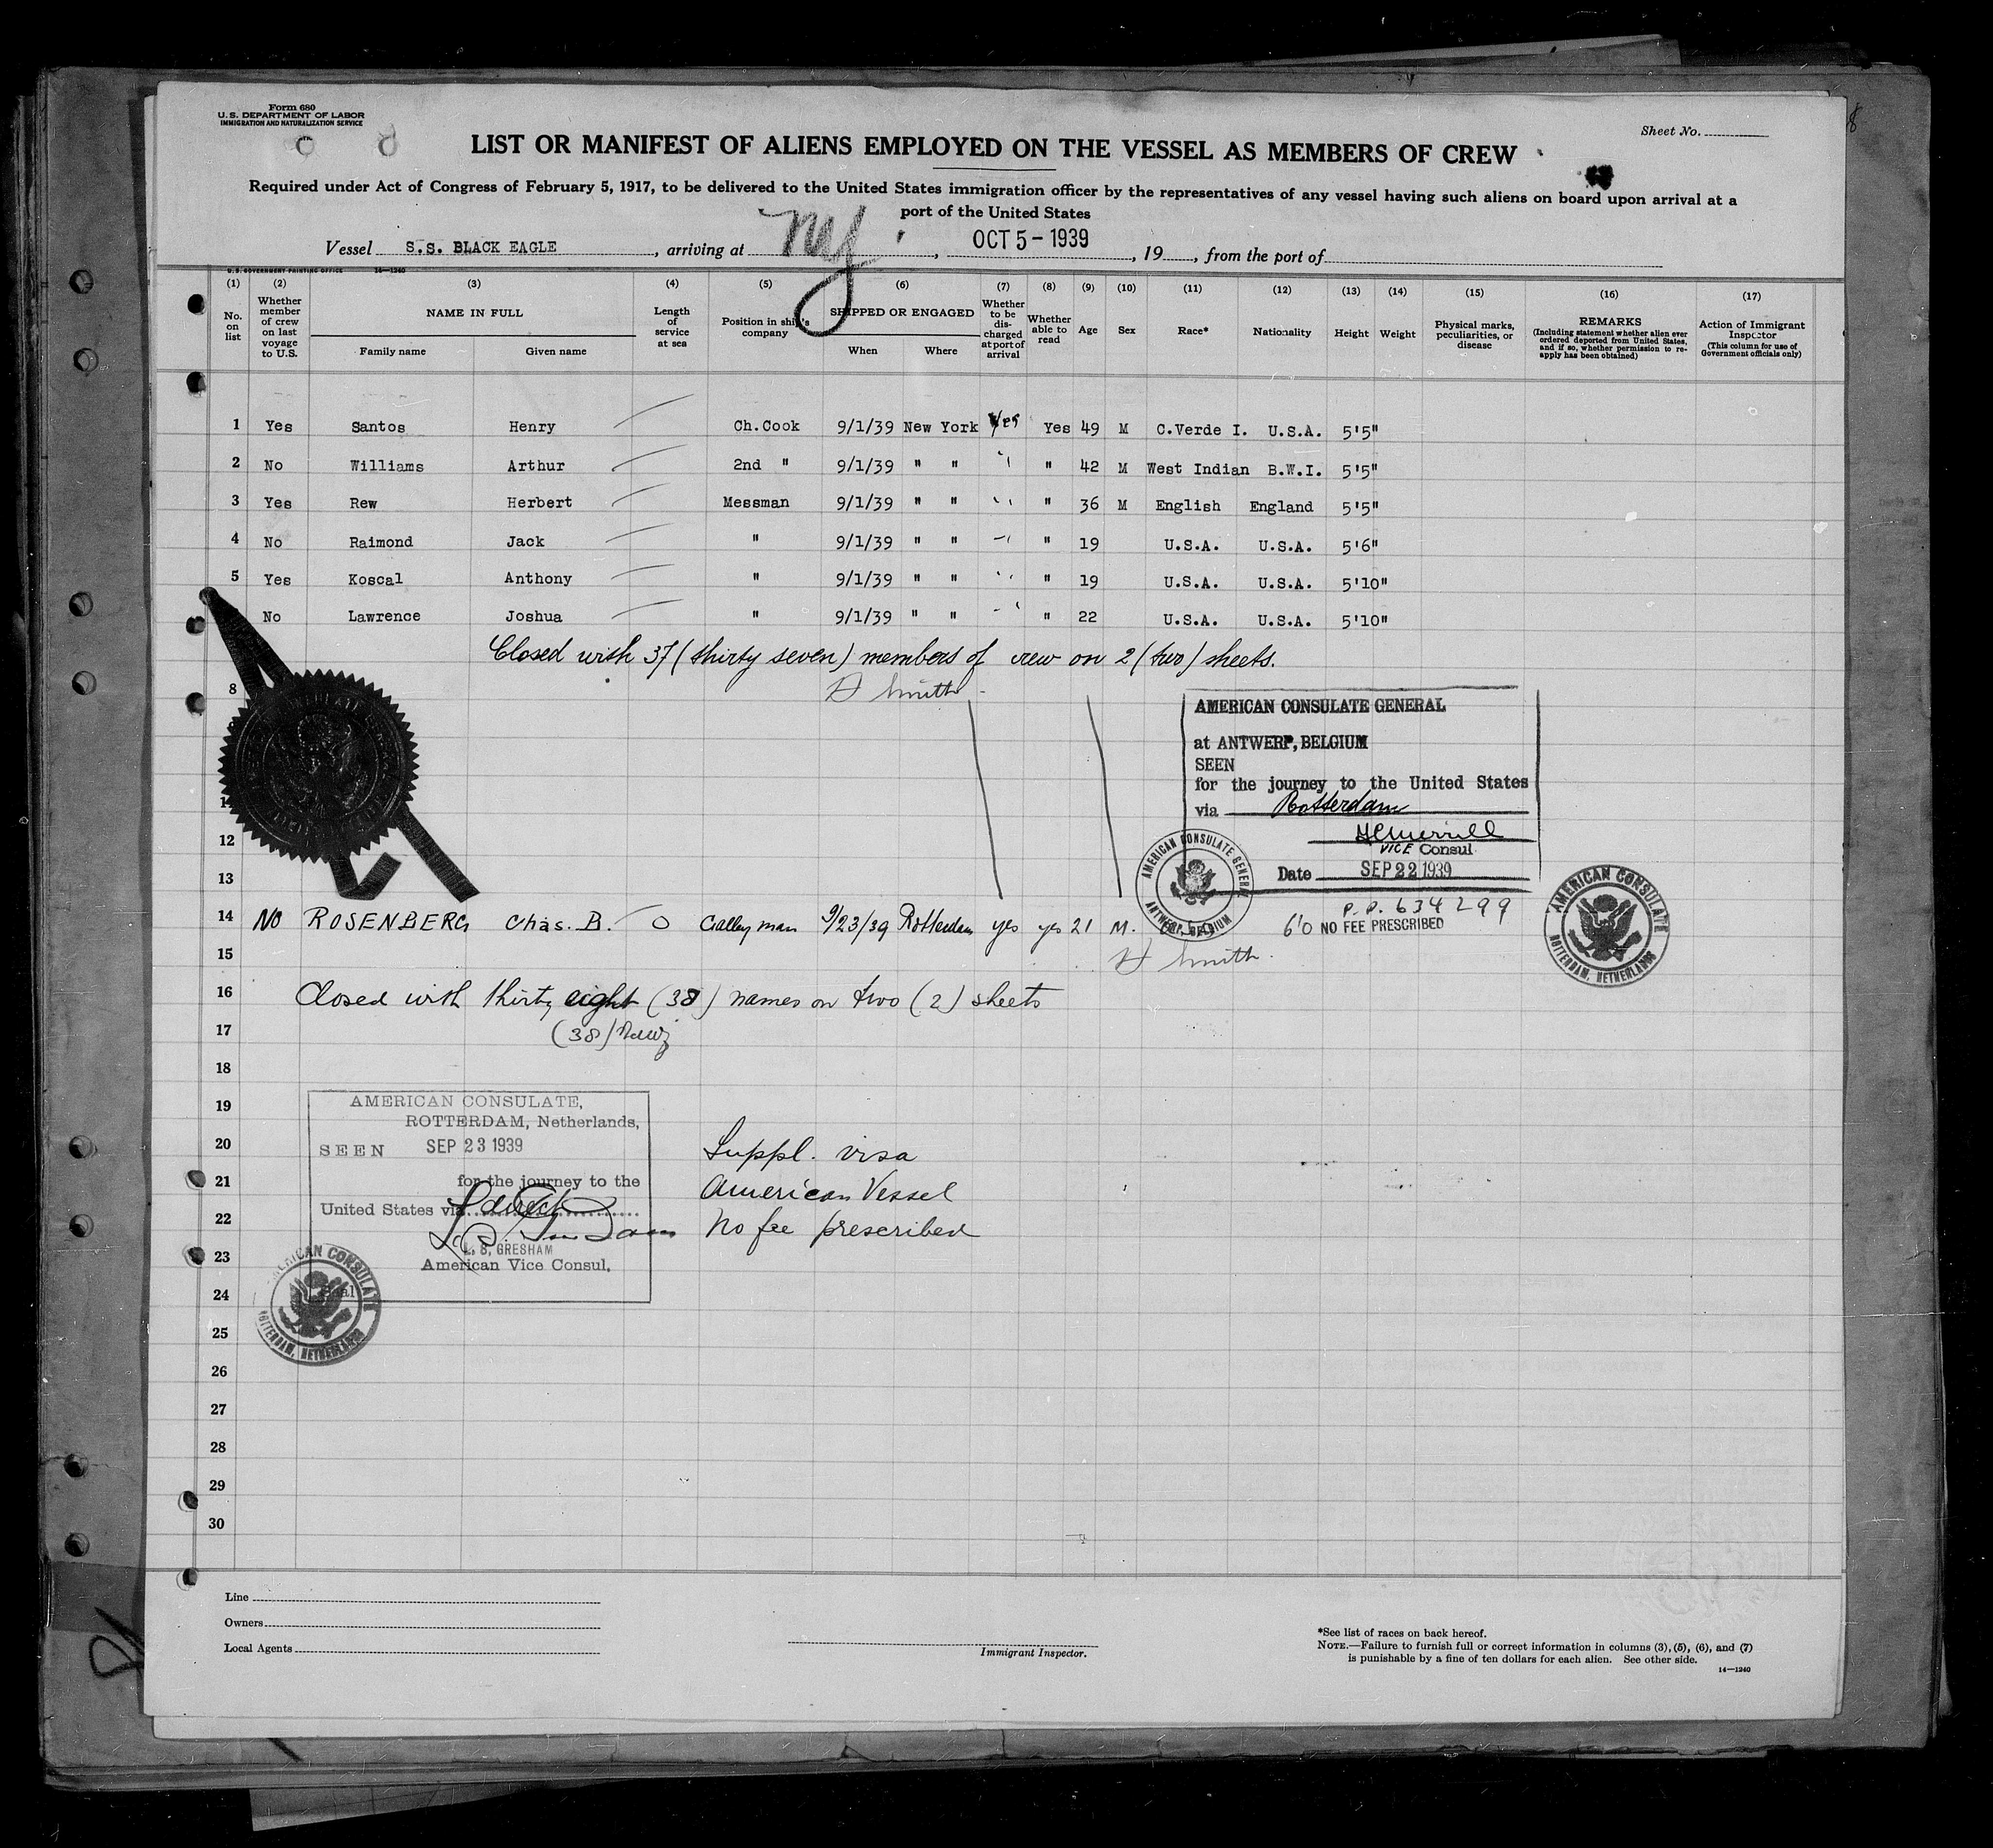 Form 680
U.S. DEPARTMENT OF LABOR
IMMIGRATION AND NATURALIZATION SERVICE
Sheet No.
LIST OR MANIFEST OF ALIENS EMPLOYED ON THE VESSEL AS MEMBERS OF CREW
Required under Act of Congress of February 5, 1917, to be delivered to the United States immigration officer by the representatives of any vessel having such aliens on board upon arrival at a
port of the United States
Vessel S.S. BLACK EAGLE, arriving at NY, OCT 5-1939, 19, from the port of
U.S. GOVERNMENT PRINTING OFFICE 14—1240
(1) (2) (3) (4) (5) (6) (7) (8) (9) (10) (11) (12) (13) (14) (15) (16) (17)
No. on list
Whether member of crew on last voyage to U.S.
NAME IN FULL
Family name Given name
Length of service at sea
Position in ship's company
SHIPPED OR ENGAGED
When Where
Whether to be discharged at port of arrival
Whether able to read
Age
Sex
Race*
Nationality
Height
Weight
Physical marks, peculiarities, or disease
REMARKS
(Including statement whether alien ever ordered deported from United States, and if so, whether permission to re-apply has been obtained)
Action of Immigrant Inspector
(This column for use of Government officials only)
1 Yes Santos Henry Ch.Cook 9/1/39 New York Yes Yes 49 M C.Verde I. U.S.A. 5'5"
2 No Williams Arthur 2nd " 9/1/39 " " " " 42 M West Indian B.W.I. 5'5"
3 Yes Rew Herbert Messman 9/1/39 " " " " 36 M English England 5'5"
4 No Raimond Jack " 9/1/39 " " " " 19 U.S.A. U.S.A. 5'6"
5 Yes Koscal Anthony " 9/1/39 " " " " 19 U.S.A. U.S.A. 5'10"
No Lawrence Joshua " 9/1/39 " " " " 22 U.S.A. U.S.A. 5'10"
Closed with 37 (thirty seven) members of crew on 2 (two) sheets.
8
H Smith
AMERICAN CONSULATE GENERAL
at ANTWERP, BELGIUM
SEEN
for the journey to the United States
via Rotterdam
VICE Consul
Date SEP 22 1939
AMERICAN CONSULATE GENERAL
ANTWERP, BELGIUM
12
13
P.P. 634299
14 NO ROSENBERG Chas. B. O Galleyman 9/23/39 Rotterdam yes yes 21 M. 6'0 NO FEE PRESCRIBED
AMERICAN CONSULATE
ROTTERDAM, NETHERLANDS
15
H Smith
16 Closed with thirty eight (38) names on two (2) sheets
17 (38)
18
19
AMERICAN CONSULATE,
ROTTERDAM, Netherlands,
20
SEEN SEP 23 1939
for the journey to the
United States via direct
L. S. GRESHAM
American Vice Consul,
Seal
AMERICAN CONSULATE
ROTTERDAM, NETHERLANDS
Suppl. visa
21 American Vessel
22 No fee prescribed
23
24
25
26
27
28
29
30
Line
Owners
Local Agents
Immigrant Inspector.
*See list of races on back hereof.
NOTE.—Failure to furnish full or correct information in columns (3), (5), (6), and (7)
is punishable by a fine of ten dollars for each alien. See other side.
14—1240